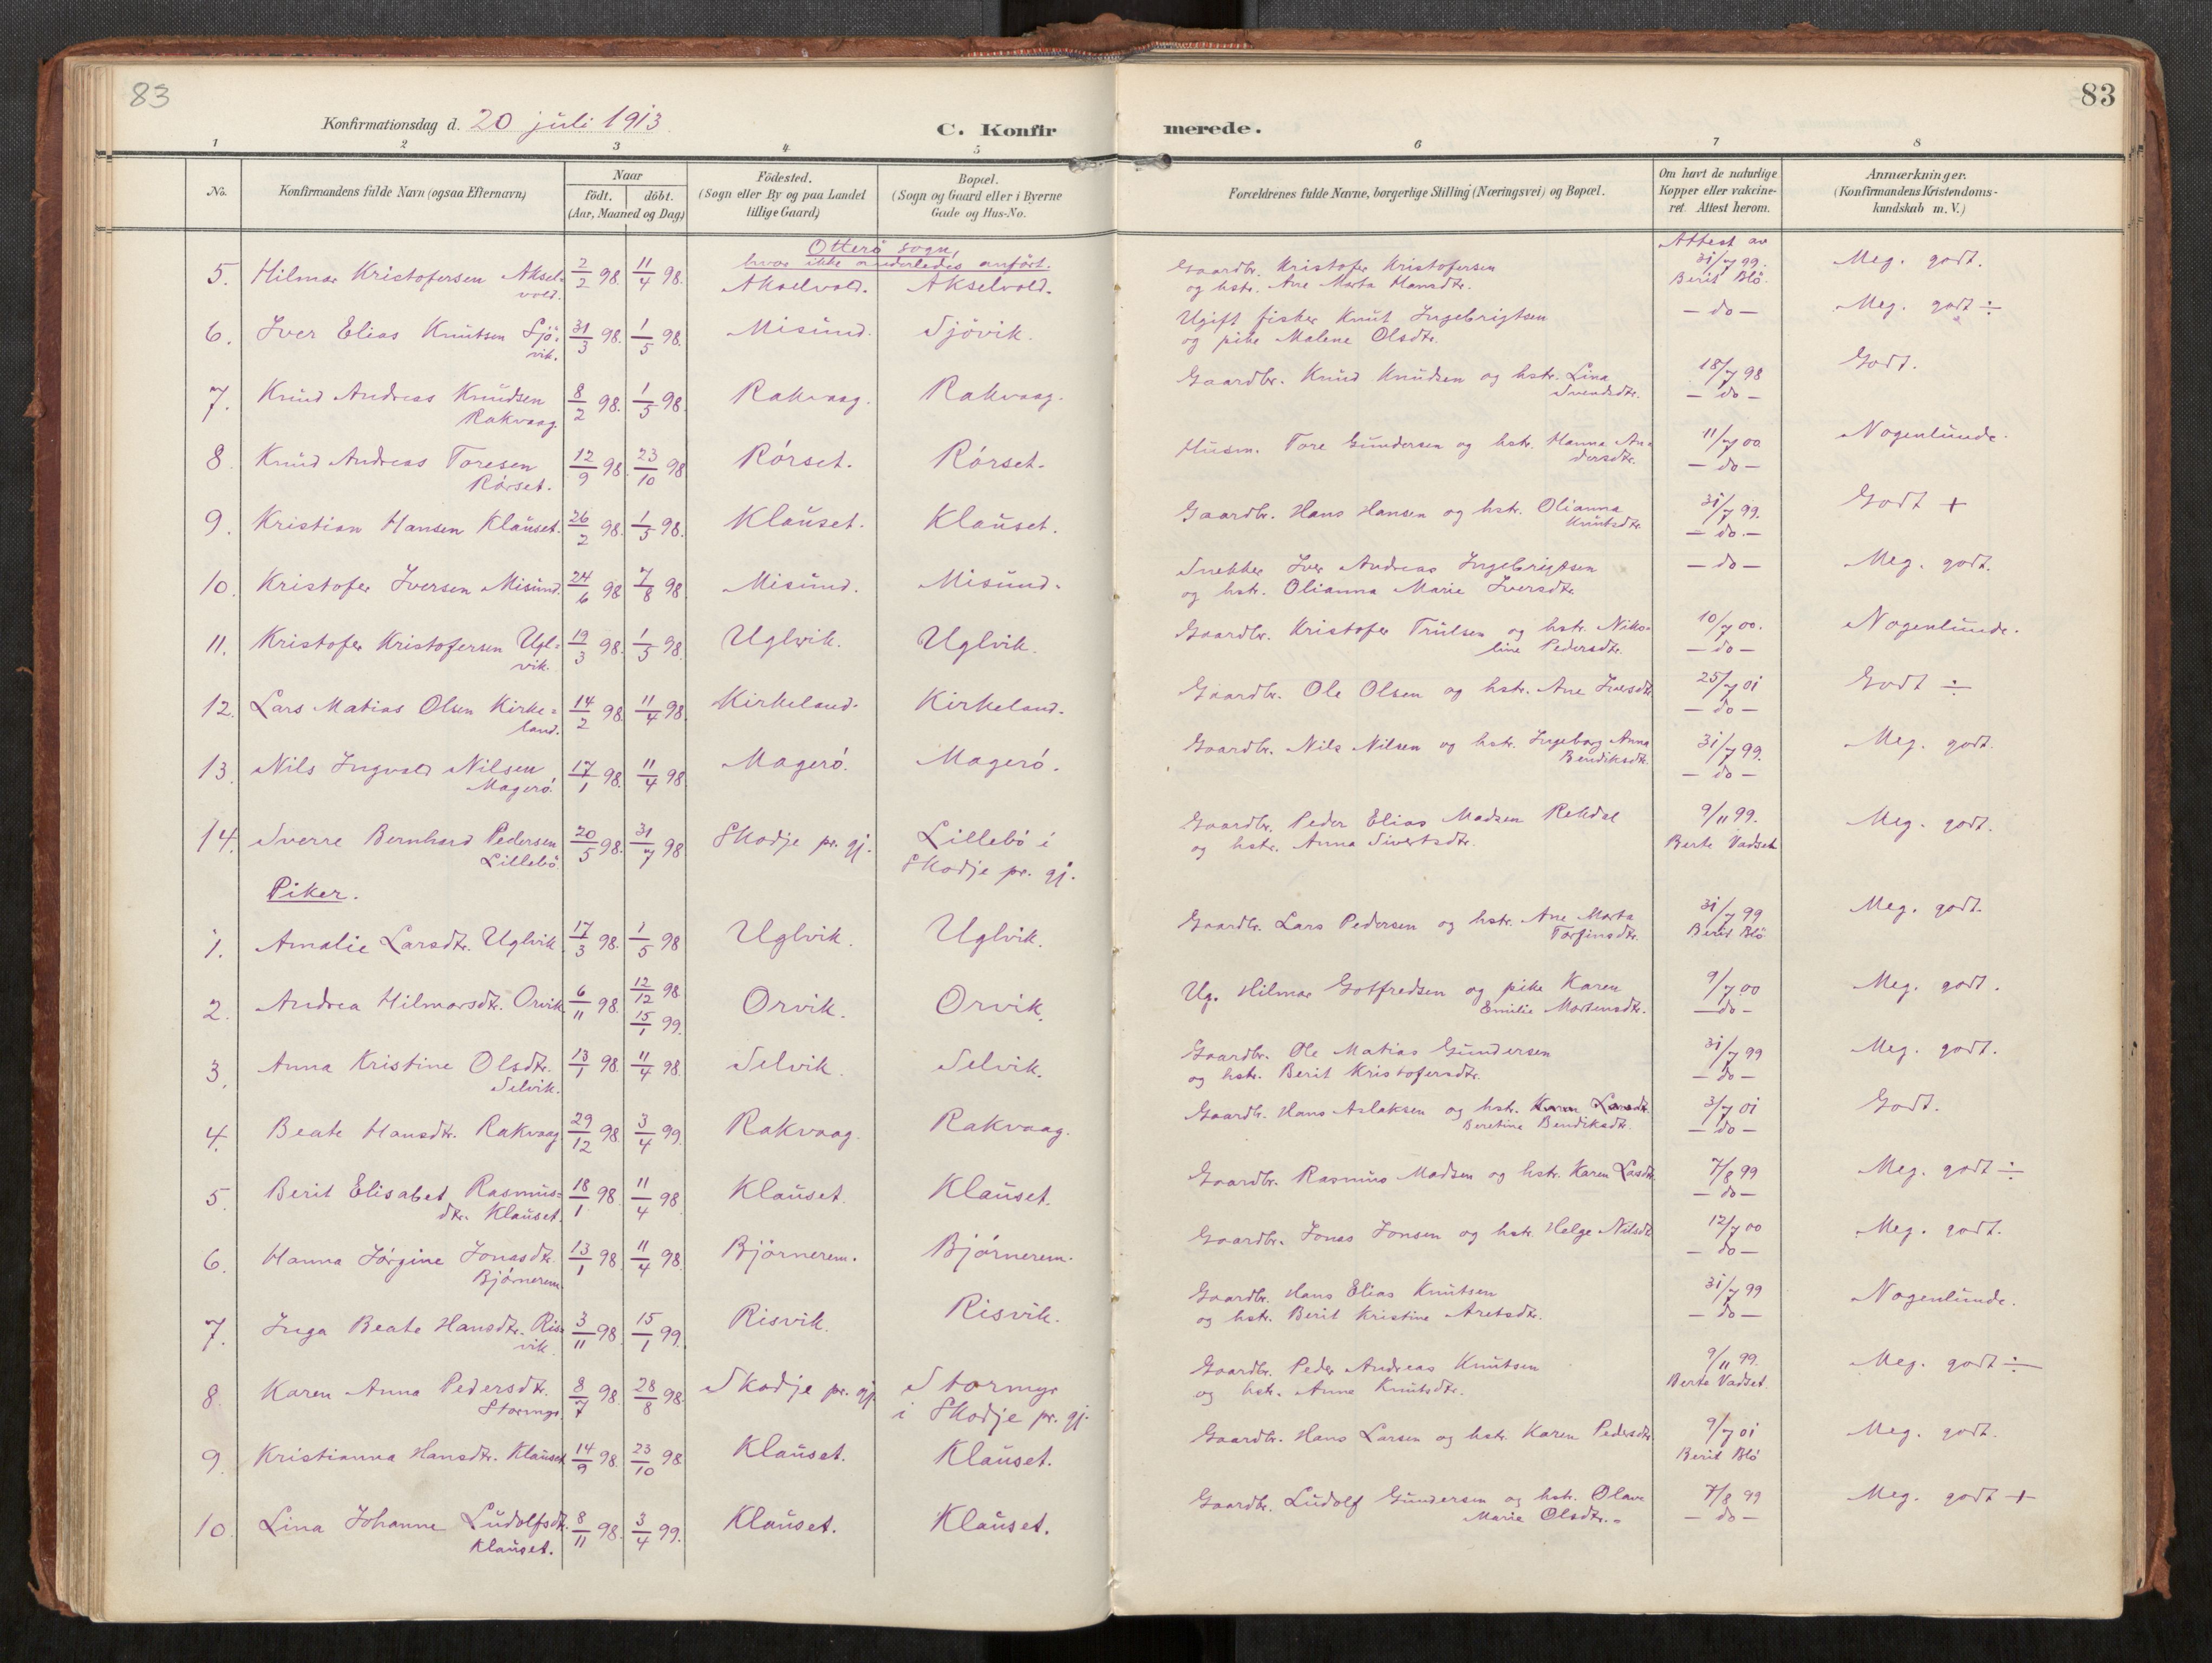 83
83
Konfirmationsdag d. 20 juli 1913.
C. Konfirmerede.
1 2 3 4 5 6 7 8
No.
Konfirmandens fulde Navn (ogsaa Efternavn)
Naar
födt. döbt.
(Aar, Maaned og Dag)
Födested.
(Sogn eller By og paa Landet
tillige Gaard)
Bopæl.
(Sogn og Gaard eller i Byerne
Gade og Hus-No.
Forældrenes fulde Navne, borgerlige Stilling (Næringsvei) og Bopæl.
Om havt de naturlige
Kopper eller vakcine-
ret. Attest herom.
Anmærkninger.
(Konfirmandens Kristendoms-
kundskab m. V.)
Otterö sogn,
hvor ikke anderledes anfört.
5. Hilmar Kristofersen Aksel-
vold. 2/2 98. 11/4 98. Akselvold. Akselvold. Gaardbr. Kristofer Kristofersen
og hstr. Ane Marta Hansdtr. Attest av
31/7 99.
Berit Blö. Meg. godt.
6. Iver Elias Knutsen Sjö-
vik. 31/3 98. 1/5 98. Misund. Sjövik. Ugift fisker Knut Ingebrigtsen
og pike Malene Olsdtr. — do — Meg. godt ÷
7. Knud Andreas Knudsen
Rakvaag. 8/2 98. 1/5 98. Rakvaag. Rakvaag. Gaardbr. Knud Knudsen og hstr. Lina
Svendsdtr. 18/7 98
— do — Godt.
8. Knud Andreas Toresen
Rörset. 12/9 98. 23/10 98. Rörset. Rörset. Husm. Tore Gundersen og hstr. Hanna An-
dersdtr. 11/7 00
— do — Nogenlunde.
9. Kristian Hansen Klauset. 26/2 98. 1/5 98. Klauset. Klauset. Gaardbr. Hans Hansen og hstr. Olianna
Knutsdtr. 31/7 99.
— do — Godt +
10. Kristofer Iversen Misund. 24/6 98 7/8 98 Misund. Misund. Snekker Iver Andreas Ingebrigtsen
og hstr. Olianna Marie Iversdtr. — do — Meg. godt.
11. Kristofer Kristofersen Ugl-
vik. 19/3 98. 1/5 98. Uglvik. Uglvik. Gaardbr. Kristofer Trulsen og hstr. Niko-
line Pedersdtr. 10/7 00.
— do — Nogenlunde.
12. Lars Matias Olsen Kirke-
land. 14/2 98. 11/4 98. Kirkeland. Kirkeland. Gaardbr. Ole Olsen og hstr. Ane Iversdtr. 25/7 01
— do — Godt ÷
13. Nils Ingvald Nilsen
Magerö. 17/1 98. 11/4 98. Magerö. Magerö. Gaardbr. Nils Nilsen og hstr. Ingeborg Anna
Bendiksdtr. 31/7 99.
— do — Meg. godt.
14. Sverre Bernhard Pedersen
Lillebö. 20/5 98. 31/7 98. Skodje pr. gj. Lillebö i
Skodje pr. gj. Gaardbr. Peder Elias Madsen Rekdal
og hstr. Anna Sivertsdtr. 9/11 99.
Berte Vadset Meg. godt.
Piker.
1. Amalie Larsdtr. Uglvik. 17/3 98. 1/5 98 Uglvik. Uglvik. Gaardbr. Lars Pedersen og hstr. Ane Marta
Torfinsdtr. 31/7 99
Berit Blö Meg. godt.
2. Andrea Hilmarsdtr. Orvik 6/11 98. 12/12 98.
15/1 99. Orvik. Orvik. Ug. Hilmar Gotfredsen og pike Karen
Emilie Mortensdtr. 9/7 00
— do — Meg. godt.
3. Anna Kristine Olsdtr.
Selvik. 13/1 98. 11/4 98. Selvik. Selvik. Gaardbr. Ole Matias Gundersen
og hstr. Berit Kristofersdtr. 31/7 99
— do — Meg. godt.
4. Beate Hansdtr. Rakvaag 29/12 98. 3/4 99. Rakvaag. Rakvaag. Gaardbr. Hans Aslaksen og hstr. Karen Larsdtr.
Beretine Bendiksdtr. 3/7 01
— do — Godt.
5. Berit Elisabet Rasmus-
dtr. Klauset. 18/1 98. 11/4 98. Klauset. Klauset. Gaardbr. Rasmus Madsen og hstr. Karen Lasdtr. 7/8 99
— do — Meg. godt ÷
6. Hanna Jörgine Jonasdtr.
Björnerem 13/1 98. 11/4 98. Björnerem. Björnerem. Gaardbr. Jonas Jonsen og hstr. Helge Nilsdtr. 12/7 00
— do — Meg. godt.
7. Inga Beate Hansdtr. Ris-
vik. 3/11 98. 15/1 99. Risvik. Risvik. Gaardbr. Hans Elias Knutsen
og hstr. Berit Kristine Aretsdtr. 31/7 99
— do — Nogenlunde.
8. Karen Anna Pedersdtr.
Stormyr. 8/7 98. 28/8 98. Skodje pr. gj. Stormyr
i Skodje pr. gj. Gaardbr. Peder Andreas Knutsen
og hstr. Anne Knutsdtr. 9/11 99.
Berte Vadset. Meg. godt ÷
9. Kristianna Hansdtr. Klauset 14/9 98. 23/10 98 Klauset. Klauset. Gaardbr. Hans Larsen og hstr. Karen Pedersdtr. 9/7 01
Berit Blö Meg. godt.
10. Lina Johanne Ludolfsdtr.
Klauset. 8/11 98. 3/4 99. Klauset. Klauset. Gaardbr. Ludolf Gundersen og hstr. Olave
Marie Olsdtr. 7/8 99
— do — Meg. godt +